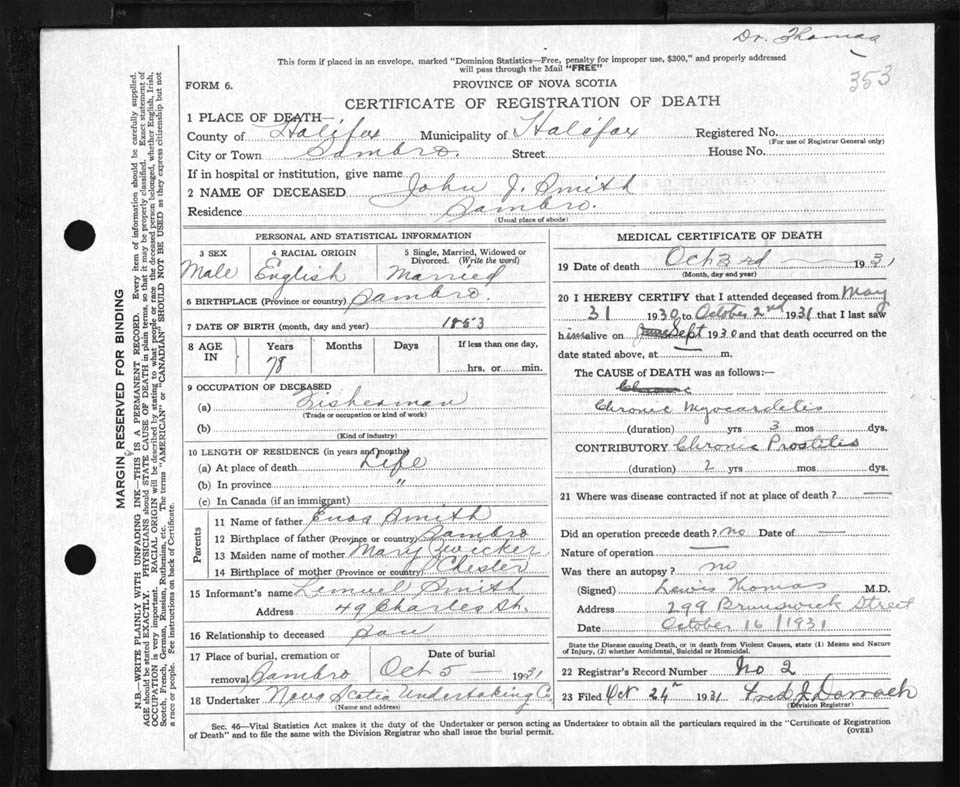 Dr. Thomas
353
This form if placed in an envelope, marked "Dominion Statistics—Free, penalty for improper use, $300," and properly addressed
will pass through the Mail "FREE"
FORM 6.
PROVINCE OF NOVA SCOTIA
CERTIFICATE OF REGISTRATION OF DEATH
1 PLACE OF DEATH
County of Halifax Municipality of Halifax Registered No.
(For use of Registrar General only)
City or Town Sambro. Street House No.
If in hospital or institution, give name
2 NAME OF DECEASED John J. Smith
Residence Sambro.
(Usual place of abode)
PERSONAL AND STATISTICAL INFORMATION
3 SEX 4 RACIAL ORIGIN 5 Single, Married, Widowed or
Divorced. (Write the word)
Male English Married
6 BIRTHPLACE (Province or country) Sambro.
7 DATE OF BIRTH (month, day and year) 1853
8 AGE IN Years Months Days If less than one day,
78 hrs. or min.
9 OCCUPATION OF DECEASED
(a) Fisherman
(Trade or occupation or kind of work)
(b)
(Kind of industry)
10 LENGTH OF RESIDENCE (in years and months)
(a) At place of death Life
(b) In province "
(c) In Canada (if an immigrant)
Parents
11 Name of father Enos Smith
12 Birthplace of father (Province or country) Sambro
13 Maiden name of mother Mary Zwicker
14 Birthplace of mother (Province or country) Chester
15 Informant's name Lemuel Smith
Address 49 Charles St.
16 Relationship to deceased Son
17 Place of burial, cremation or Date of burial
removal Sambro Oct 5 — 1931
18 Undertaker Nova Scotia Undertaking Co
(Name and address)
MEDICAL CERTIFICATE OF DEATH
19 Date of death Oct 3rd 1931
(Month, day and year)
20 I HEREBY CERTIFY that I attended deceased from May
31 1930 to October 2nd 1931 that I last saw
him alive on Sept 1930 and that death occurred on the
date stated above, at — m.
The CAUSE of DEATH was as follows:—
Chronic
Chronic Myocardetis
(duration) yrs 3 mos dys.
CONTRIBUTORY Chronic Prostites
(duration) 2 yrs mos dys.
21 Where was disease contracted if not at place of death? —
Did an operation precede death? no Date of —
Nature of operation —
Was there an autopsy? no
(Signed) Lewis Thomas M.D.
Address 299 Brunswick Street
Date October 16 / 1931
State the Disease causing Death, or in death from Violent Causes, state (1) Means and Nature
of Injury, (2) whether Accidental, Suicidal or Homicidal.
22 Registrar's Record Number No 2
23 Filed Oct 24th 1931 Fred J Darrach
(Division Registrar)
Sec. 46—Vital Statistics Act makes it the duty of the Undertaker or person acting as Undertaker to obtain all the particulars required in the "Certificate of Registration
of Death" and to file the same with the Division Registrar who shall issue the burial permit. (OVER)
MARGIN RESERVED FOR BINDING
N.B.—WRITE PLAINLY WITH UNFADING INK—THIS IS A PERMANENT RECORD. Every item of information should be carefully supplied.
AGE should be stated EXACTLY. PHYSICIANS should STATE CAUSE OF DEATH in plain terms so that it may be properly classified. Exact statement of
OCCUPATION is very important. RACIAL ORIGIN will be described by stating to what people or race the deceased person belonged, whether English, Irish,
Scotch, French, German, Russian, Ruthenian, etc. The terms "AMERICAN" or "CANADIAN" SHOULD NOT BE USED as they express citizenship but not
a race or people. See instructions on back of Certificate.